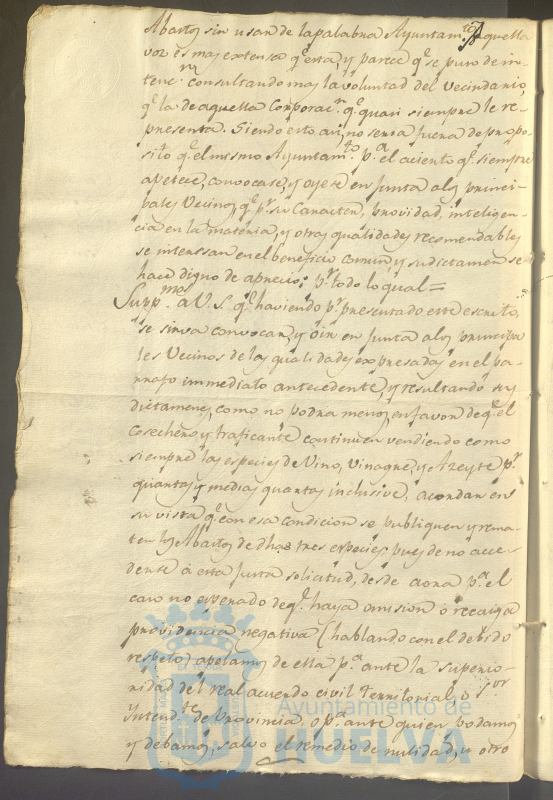 Abastos sin usar de la palabra Ayuntam.to aquella
voz es mas extensa q.e esta, y parece q.e se puso de in-
tento consultando mas la voluntad del Vecindario,
q.e la de aquella Corporac.n q.e quasi siempre le re-
presenta. Siendo esto asi, no seria fuera de propo-
sito q.e el mismo Ayuntam.to p.a el acierto q.e siempre
apetece, convocase, y oyese en Junta a los princi-
pales Vecinos, q.e p.r su Caracter, providad, inteligen-
cia en la materia, y otras qualidades recomendables
se interesan en el beneficio comun, y su dictamen se
hace digno de aprecio; p.r todo lo qual =
Supp.mos a V.S. q.e haviendo p.r presentado este escrito,
se sirva convocar, y oir en Junta a los principa
les Vecinos de las qualidades expresadas en el pa-
rrafo immediato antecedente, y resultando sus
dictamenes, como no podra menos, en favor de q.e el
Cosechero y traficante continuen vendiendo como
siempre las especies de Vino, Vinagre, y Azeyte p.r
quartas y medias quartas inclusive, acordar en
su vista q.e con esa condicion se publiquen y rema-
ten los Abastos de dhas tres especies; pues de no acce-
derse á esta justa solicitud, desde aora p.a el
caso no esperado de q.e haya omision ó recaiga
providencia negativa (hablando con el debido
respeto) apelamos de ella p.a ante la superio-
ridad del real acuerdo civil Territorial, ó S.or
Intend.te de Provincia, o p.a ante quien podamos
y debamos, salvo el remedio de nulidad, u otro
Ayuntamiento de
HUELVA